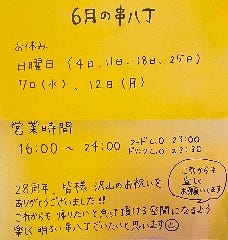 6月の串八丁
お休み
日曜日 (4日,11日,18日,25日)
7日(水)、12日(月)
営業時間
16:00 ~ 24:00 フードL.O 23:00
ドリンクL.O 23:30
28周年、皆様 沢山のお祝いを
ありがとうございました!!
これからも 帰りたいと思って頂ける空間になるよう
楽しく 明るい串八丁でいたいと思います
これからも
宜しく
お願いします